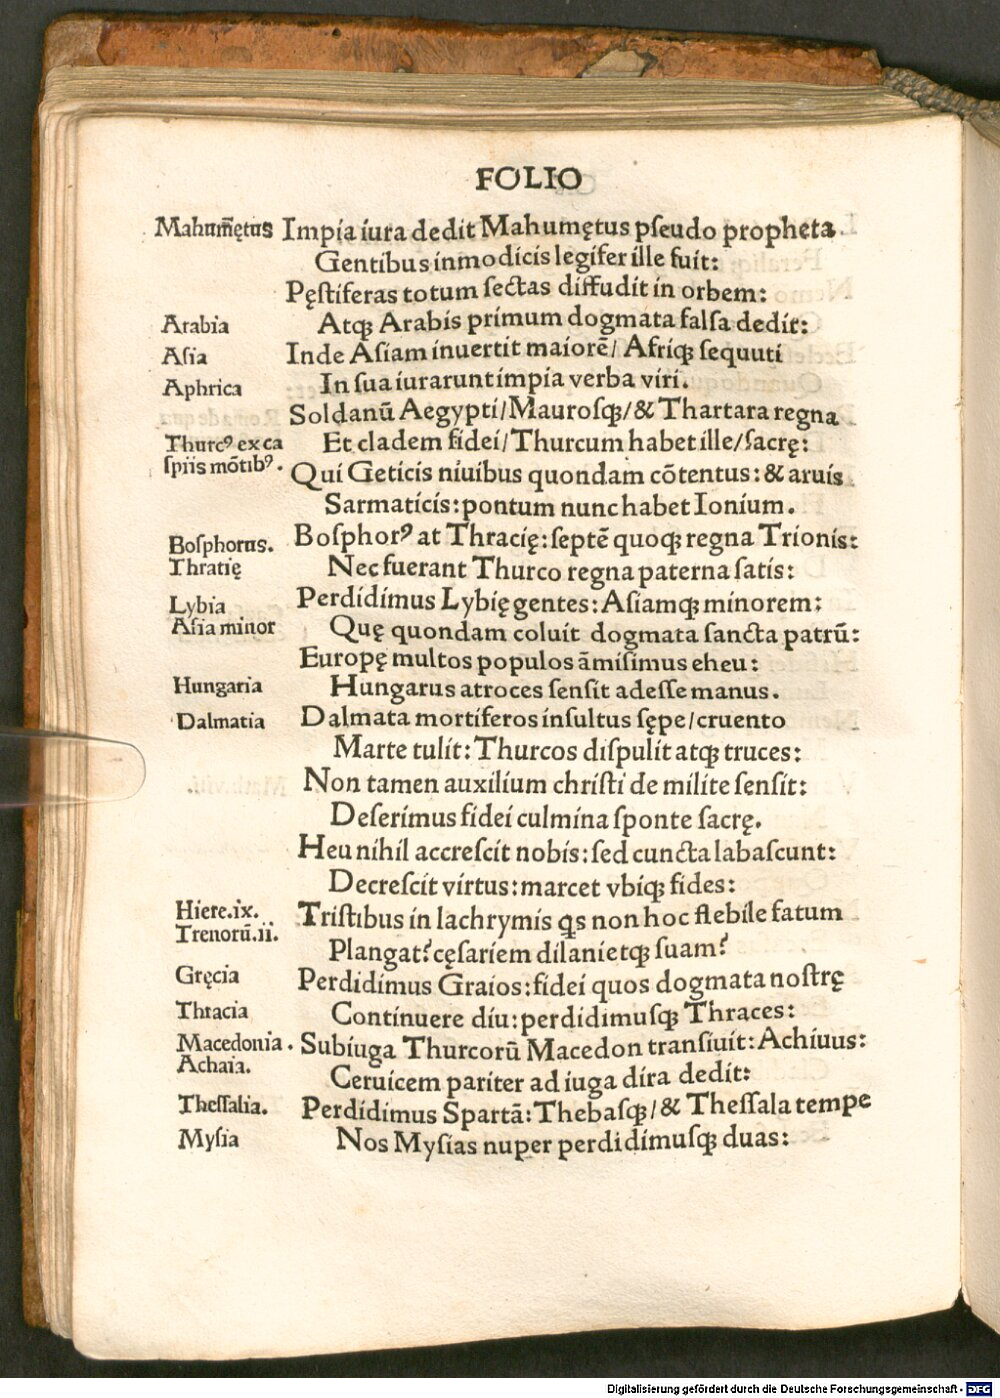 FOLIO
Mahum̄ętus Impia iura dedit Mahumętus pſeudo propheta
Gentibus inmodicis legifer ille fuit:
Pęſtiferas totum ſectas diffudit in orbem:
Arabia Atqꝫ Arabis primum dogmata falſa dedit:
Aſia Inde Aſiam inuertit maiorē/ Afriqꝫ ſequuti
Aphrica In ſua iurarunt impia verba viri.
Soldanū Aegypti/Mauroſqꝫ/& Thartara regna
Thurcꝰ ex ca Et cladem fidei/Thurcum habet ille/ſacrę:
ſpiis mōtibꝰ. Qui Geticis niuibus quondam cōtentus:& aruis
Sarmaticis:pontum nunc habet Ionium.
Boſphorus. Boſphorꝰ at Thracię:ſeptē quoqꝫ regna Trionis:
Thratię Nec fuerant Thurco regna paterna ſatis:
Lybia Perdidimus Lybię gentes:Aſiamqꝫ minorem:
Aſia minor Quę quondam coluit dogmata ſancta patrū:
Europę multos populos āmiſimus eheu:
Hungaria Hungarus atroces ſenſit adeſſe manus.
Dalmatia Dalmata mortiferos inſultus ſępe/cruento
Marte tulit:Thurcos diſpulit atqꝫ truces:
Non tamen auxilium chriſti de milite ſenſit:
Deſerimus fidei culmina ſponte ſacrę.
Heu nihil accreſcit nobis:ſed cuncta labaſcunt:
Decreſcit virtus:marcet vbiqꝫ fides:
Hiere.ix. Triſtibus in lachrymis qͥs non hoc flebile fatum
Trenorū.ii. Plangat?cęſariem dilanietqꝫ ſuam?
Gręcia Perdidimus Graios:fidei quos dogmata noſtrę
Thracia Continuere diu:perdidimuſqꝫ Thraces:
Macedonia. Subiuga Thurcorū Macedon tranſiuit:Achiuus:
Achaia. Ceruicem pariter ad iuga dira dedit:
Theſſalia. Perdidimus Spartā:Thebaſqꝫ/& Theſſala tempe
Myſia Nos Myſias nuper perdidimuſqꝫ duas:
Digitalisierung gefördert durch die Deutsche Forschungsgemeinschaft - DFG